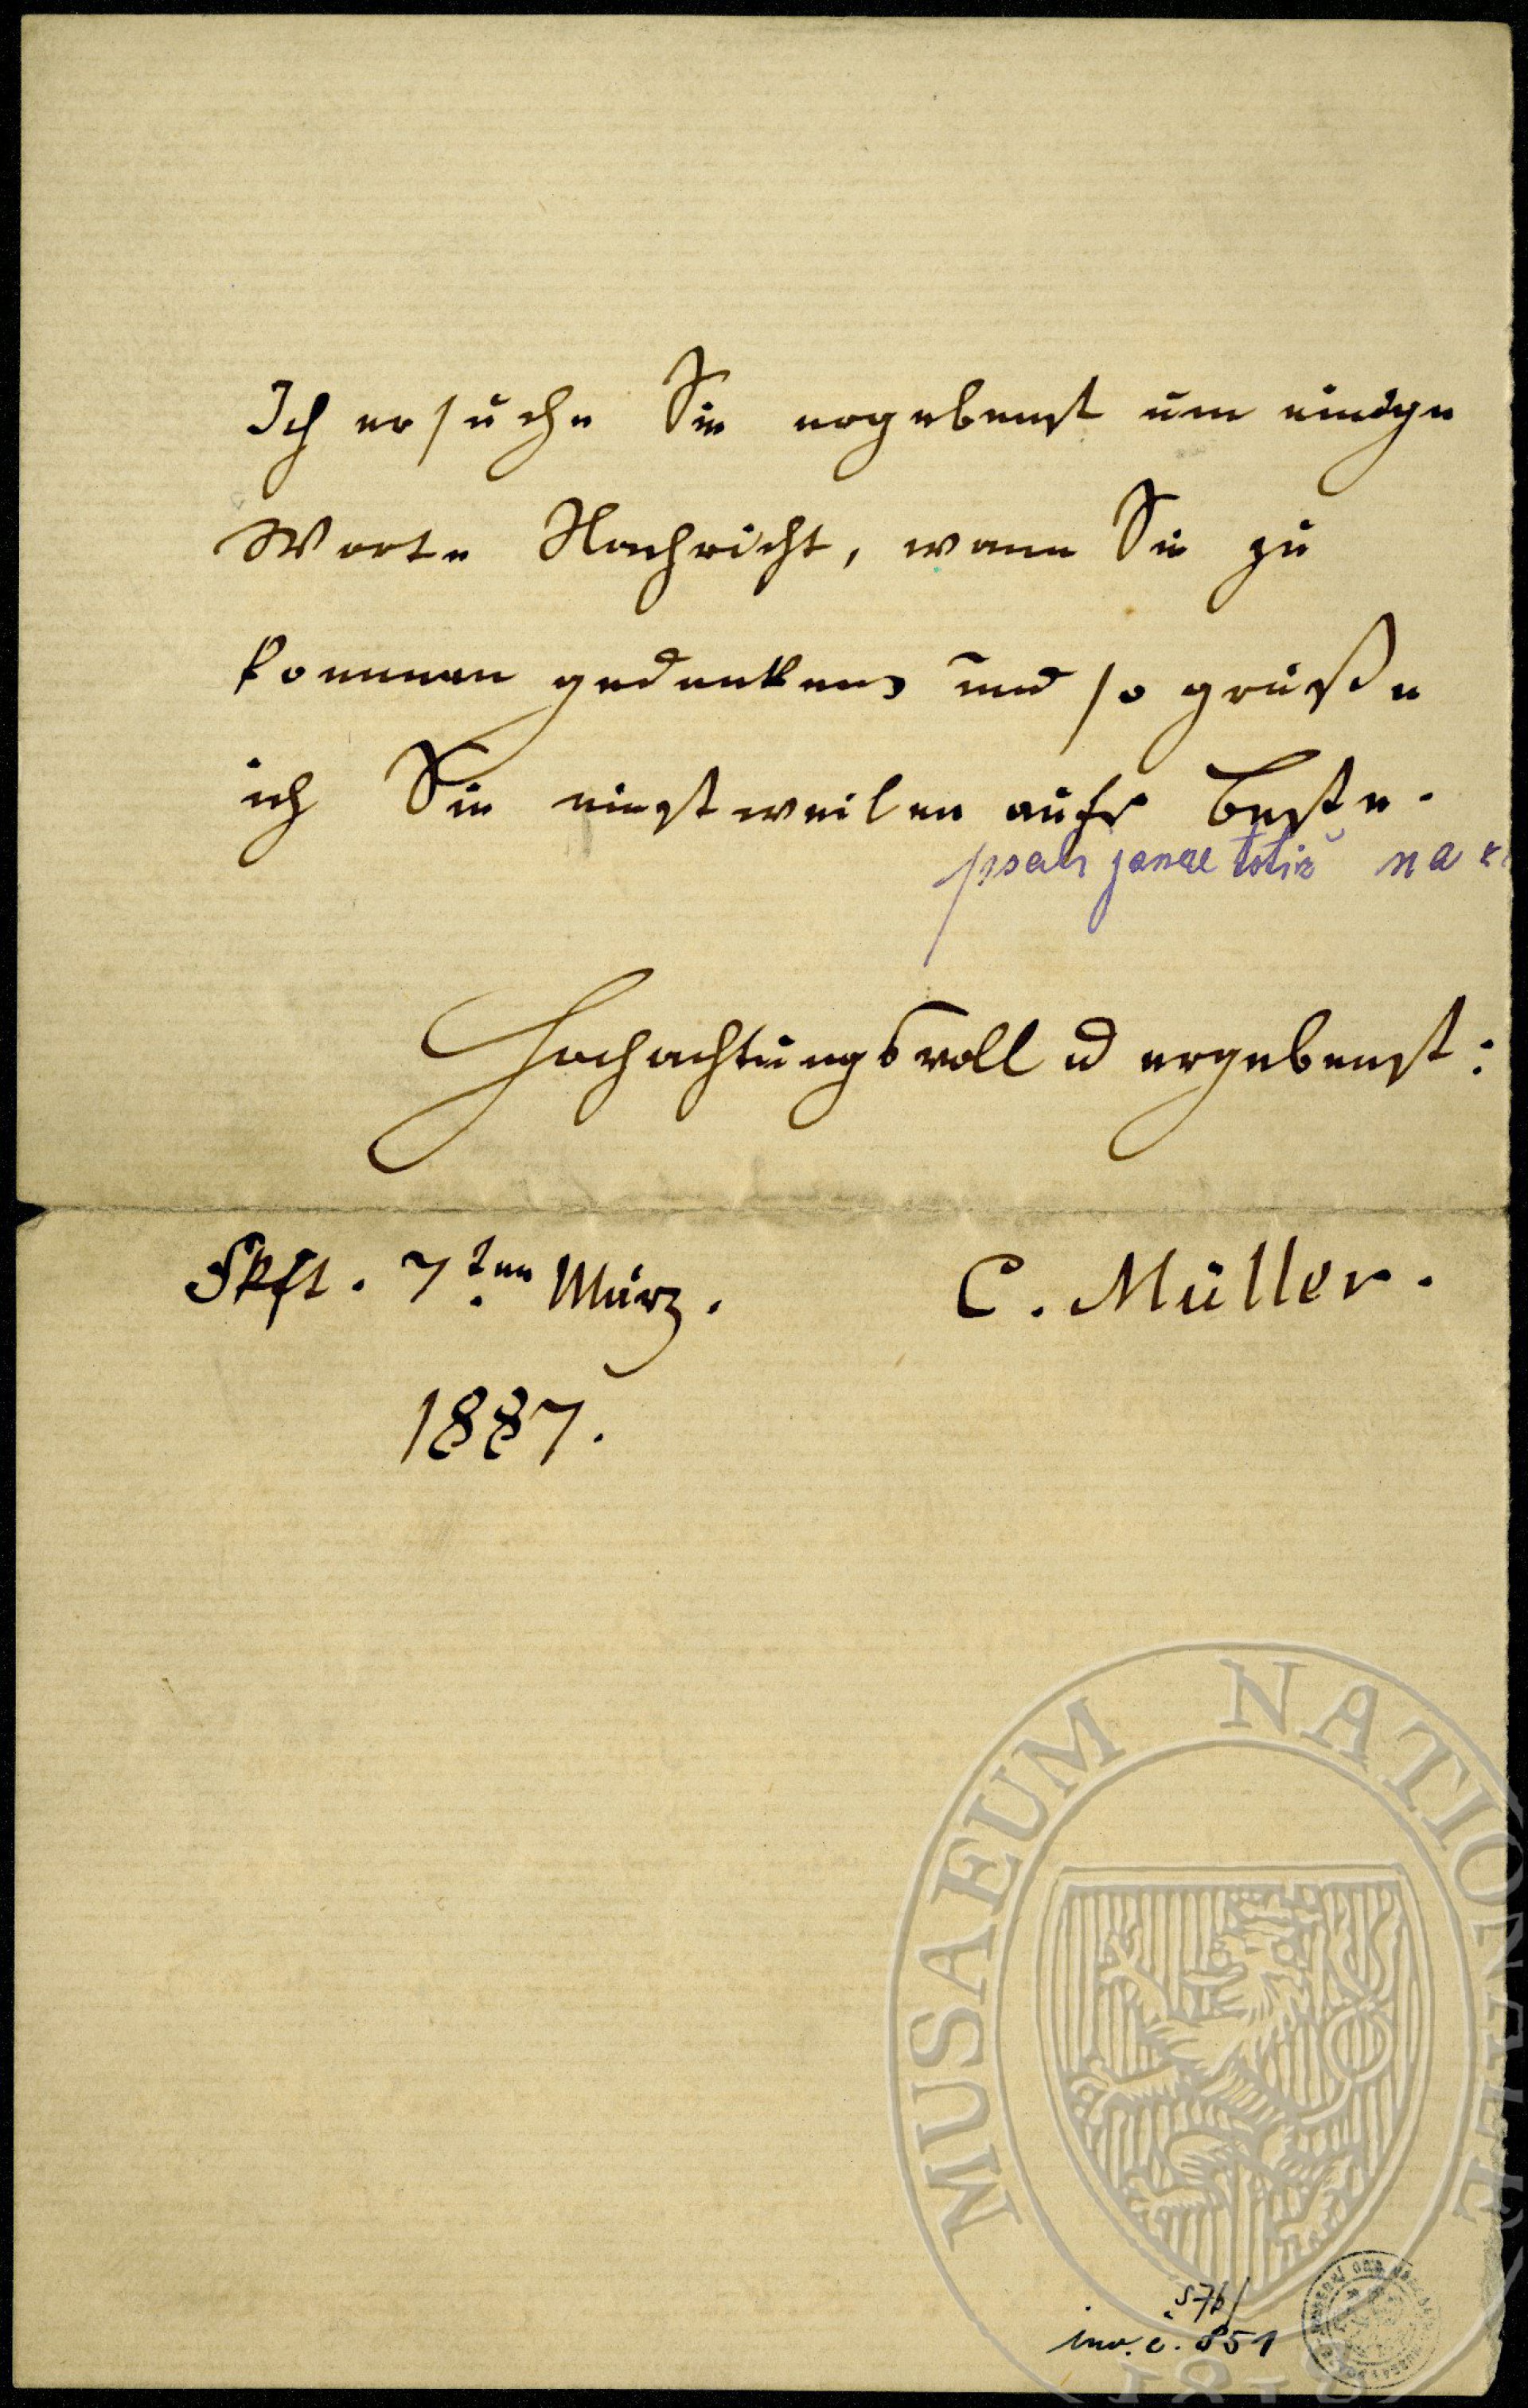 Ich ersuche Sie ergebenst um einige
Worte Nachricht, wann Sie zu
kommen gedenken und so grüße
ich Sie einstweilen aufs Beste.
totiž na
Hochachtungsvoll u ergebenst:
Fkft. 7ten März. C. Müller.
1887.
MUSAEUM NATIONALE
inv. č. 851
1818